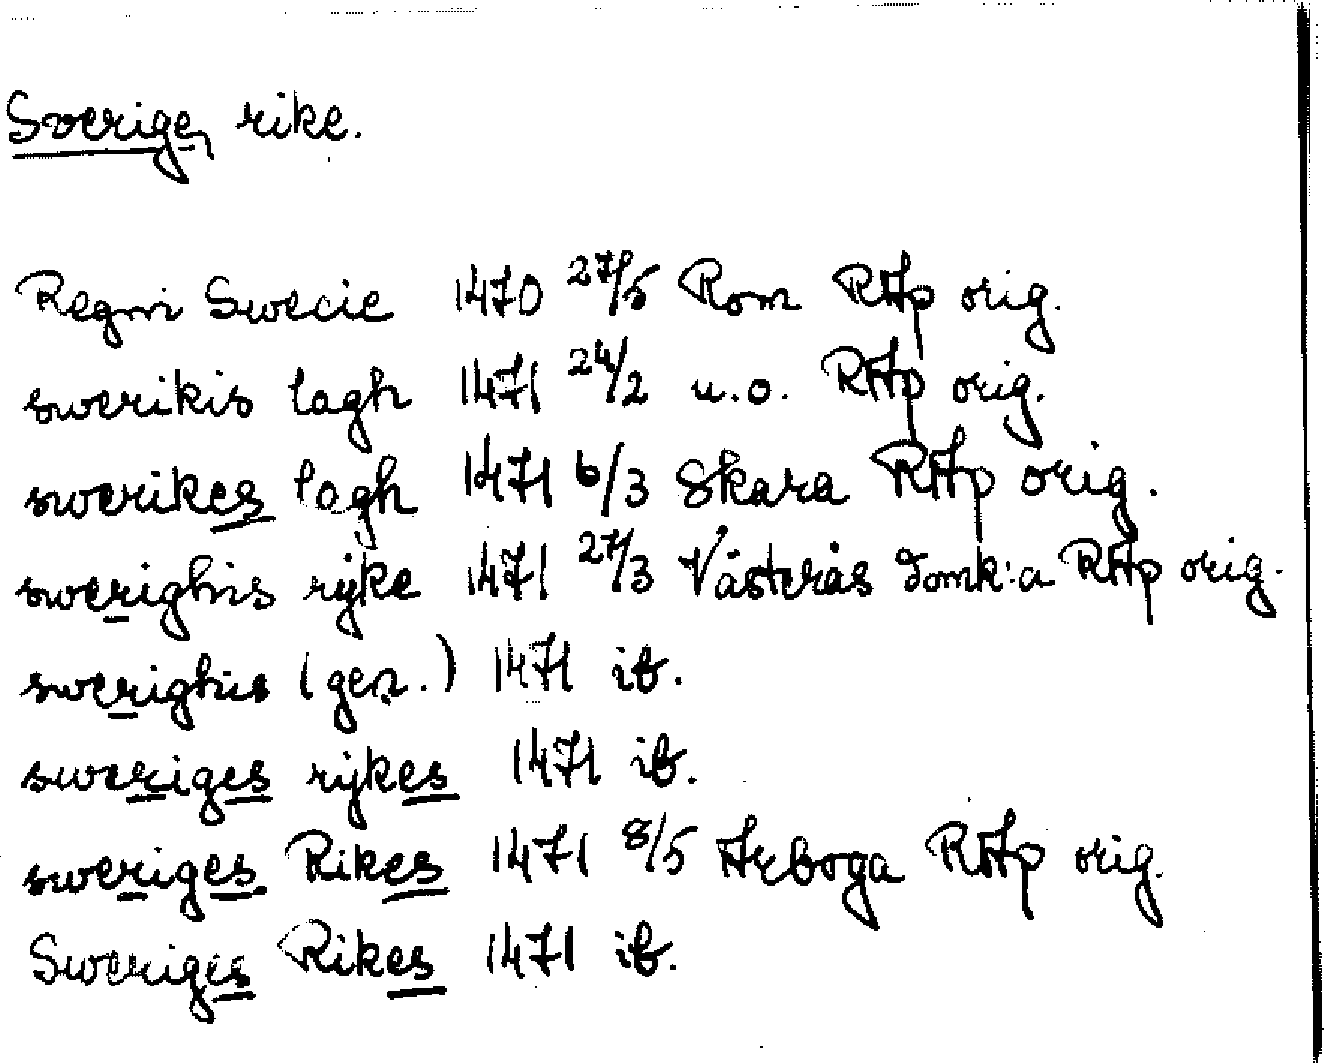 Sverige, rike.
Regni Swecie 1470 27/5 Rom RAp orig.
swerikis lagh 1471 24/2 u.o. RAp orig.
swerikes lagh 1471 6/3 Skara RAp orig.
swerighis rijke 1471 27/3 Västerås domk:a RAp orig.
swerighis (gen.) 1471 ib.
sweriges rijkes 1471 ib.
sweriges Rikes 1471 8/5 Arboga RAp orig.
Sweriges Rikes 1471 ib.